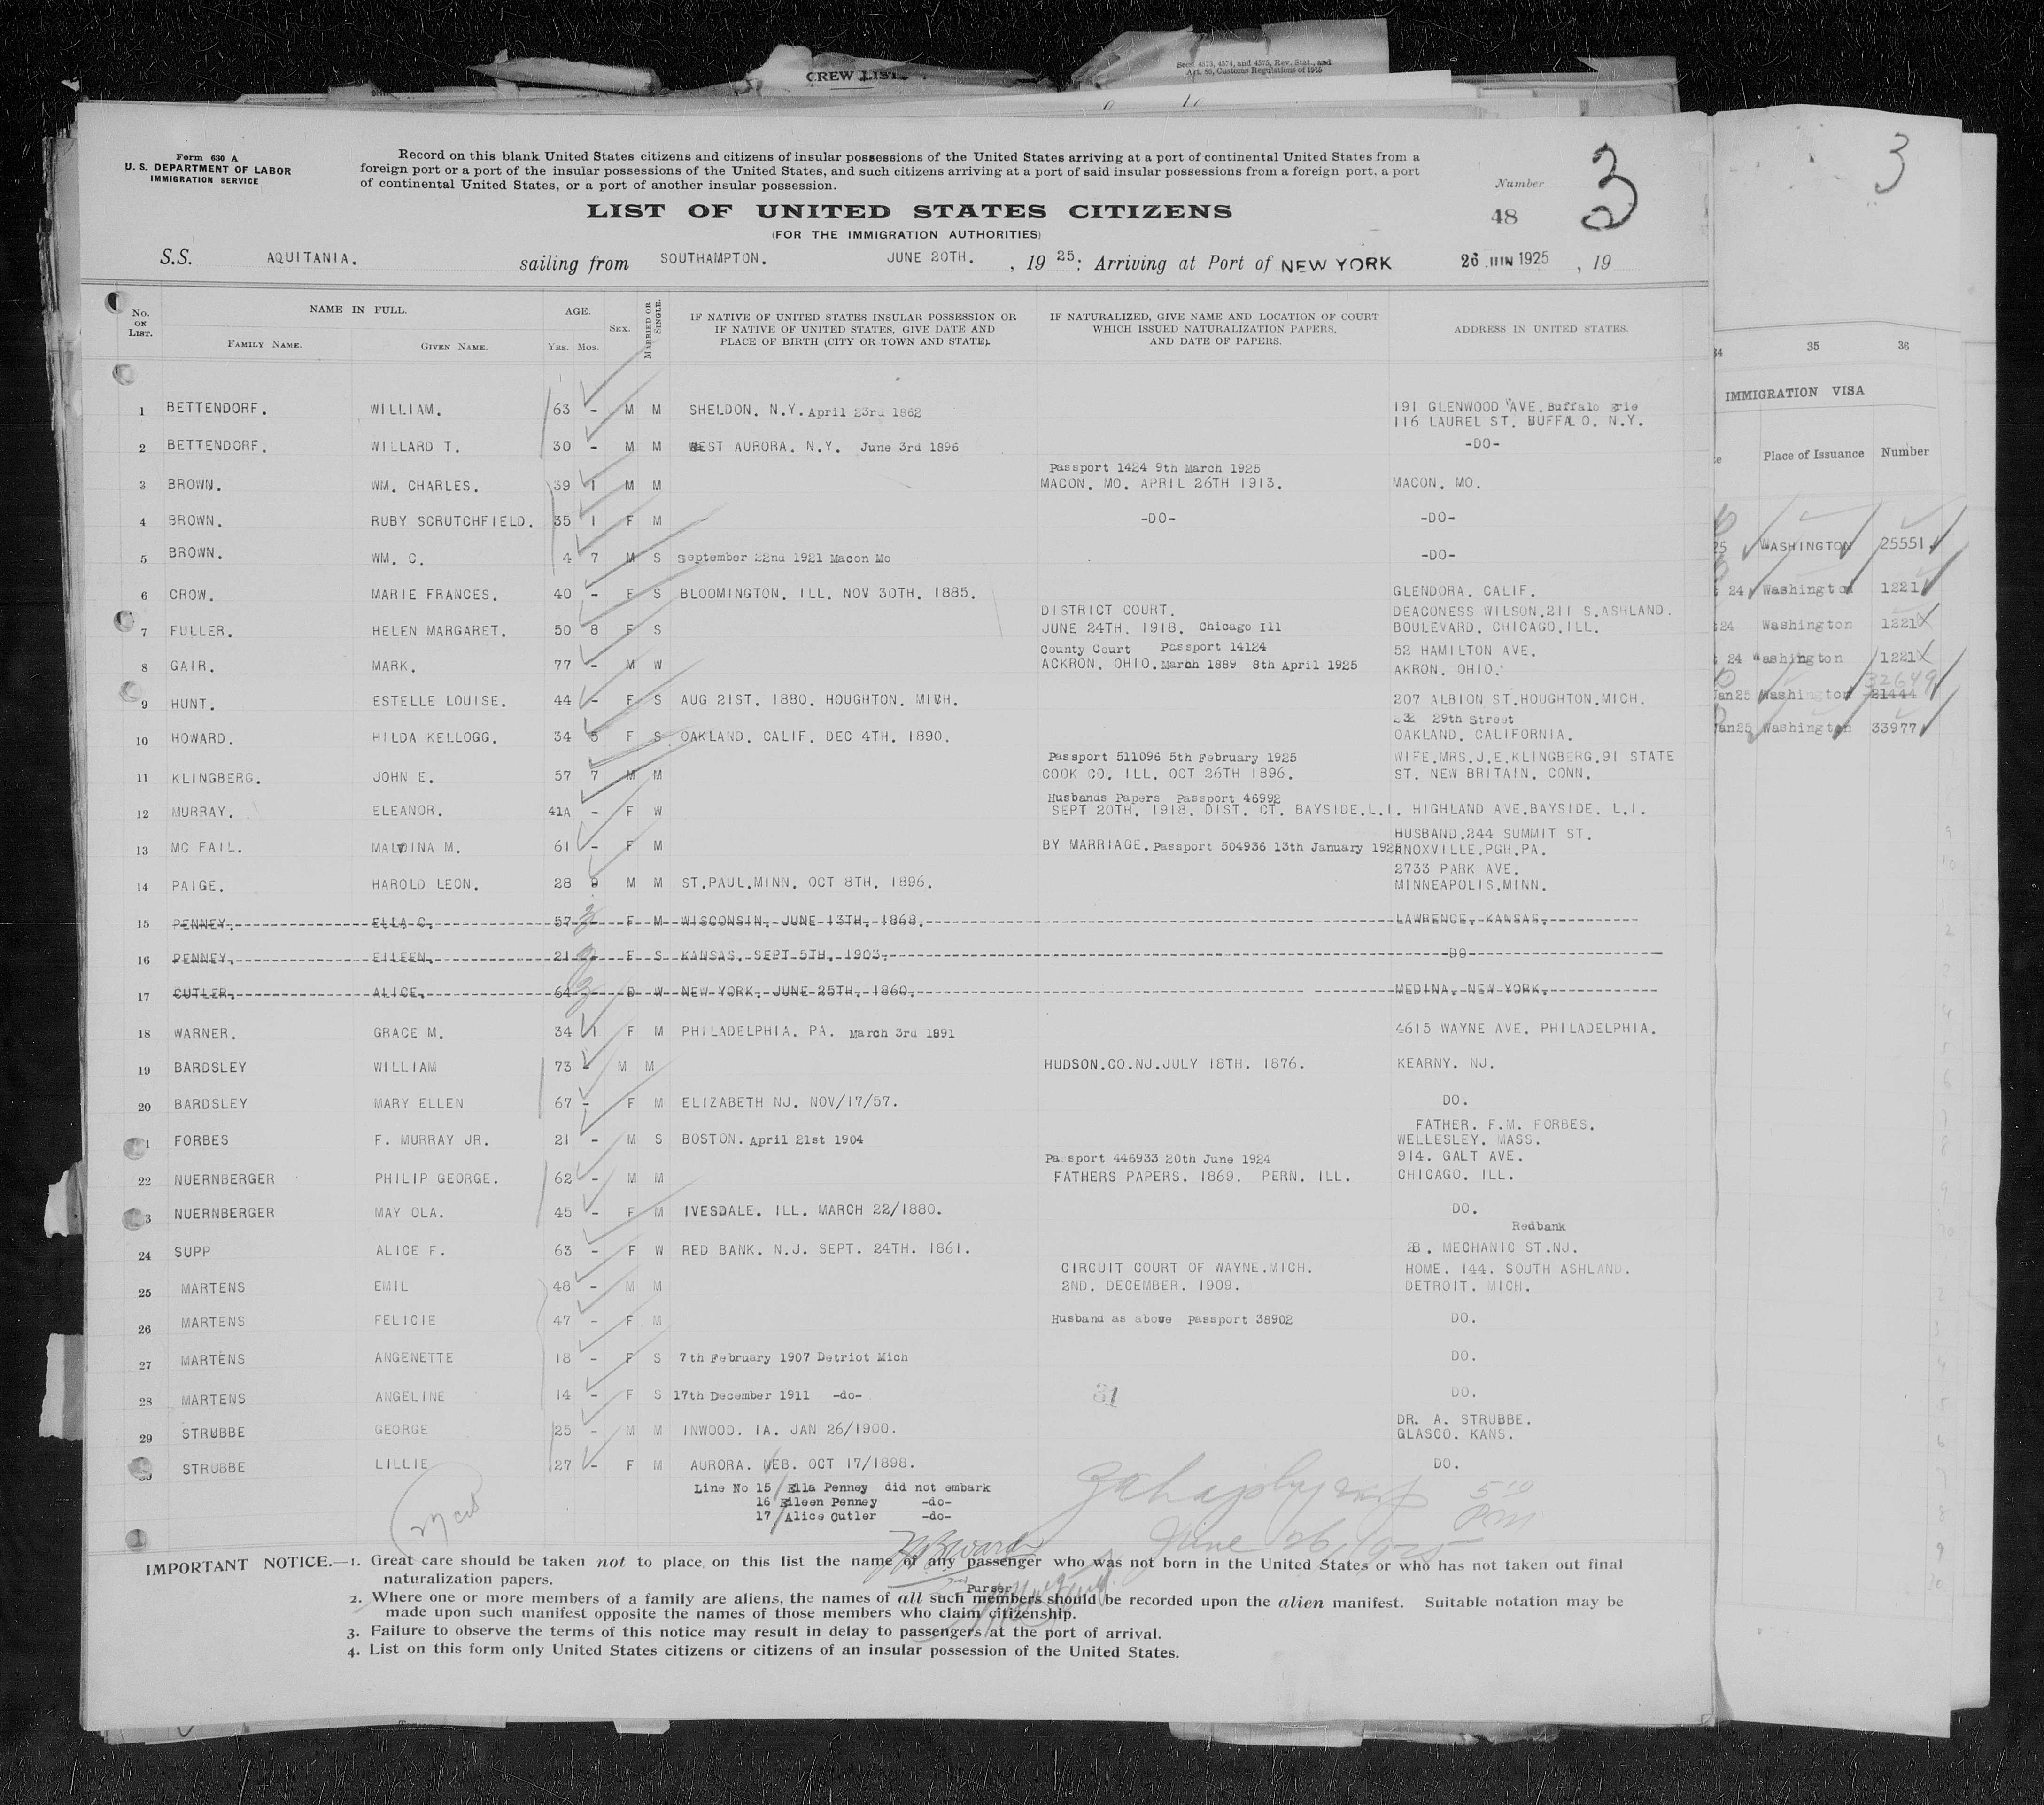 CREW LIST
Secs. 4573, 4574, and 4575, Rev. Stat., and
Art. 86, Customs Regulations of 1915
Form 630 A
U. S. DEPARTMENT OF LABOR
IMMIGRATION SERVICE
Record on this blank United States citizens and citizens of insular possessions of the United States arriving at a port of continental United States from a
foreign port or a port of the insular possessions of the United States, and such citizens arriving at a port of said insular possessions from a foreign port, a port
of continental United States, or a port of another insular possession.
Number
48
3
LIST OF UNITED STATES CITIZENS
(FOR THE IMMIGRATION AUTHORITIES)
S.S. AQUITANIA. sailing from SOUTHAMPTON. JUNE 20TH. , 19 25; Arriving at Port of NEW YORK 26 JUN 1925 , 19
No. ON LIST. NAME IN FULL. FAMILY NAME. GIVEN NAME. AGE. YRS. MOS. SEX. MARRIED OR SINGLE. IF NATIVE OF UNITED STATES INSULAR POSSESSION OR IF NATIVE OF UNITED STATES, GIVE DATE AND PLACE OF BIRTH (CITY OR TOWN AND STATE). IF NATURALIZED, GIVE NAME AND LOCATION OF COURT WHICH ISSUED NATURALIZATION PAPERS, AND DATE OF PAPERS. ADDRESS IN UNITED STATES.
1 BETTENDORF. WILLIAM. 63 - M M SHELDON. N.Y. April 23rd 1862 191 GLENWOOD AVE. Buffalo Erie
116 LAUREL ST. BUFFALO. N.Y.
2 BETTENDORF. WILLARD T. 30 - M M WEST AURORA. N.Y. June 3rd 1896 -DO-
Passport 1424 9th March 1925
3 BROWN. WM. CHARLES. 39 1 M M MACON. MO. APRIL 26TH 1913. MACON. MO.
4 BROWN. RUBY SCRUTCHFIELD. 35 1 F M -DO- -DO-
5 BROWN. WM. C. 4 7 M S September 22nd 1921 Macon Mo -DO-
6 CROW. MARIE FRANCES. 40 - F S BLOOMINGTON. ILL. NOV 30TH. 1885. GLENDORA. CALIF.
DISTRICT COURT. DEACONESS WILSON.211 S.ASHLAND.
7 FULLER. HELEN MARGARET. 50 8 F S JUNE 24TH. 1918. Chicago Ill BOULEVARD. CHICAGO.ILL.
County Court Passport 14124 52 HAMILTON AVE.
8 GAIR. MARK. 77 - M W ACKRON. OHIO. March 1889 8th April 1925 AKRON. OHIO.
9 HUNT. ESTELLE LOUISE. 44 - F S AUG 21ST. 1880. HOUGHTON. MICH. 207 ALBION ST.HOUGHTON.MICH.
29th Street
10 HOWARD. HILDA KELLOGG. 34 5 F S OAKLAND. CALIF. DEC 4TH. 1890. OAKLAND. CALIFORNIA.
Passport 511096 5th February 1925 WIFE.MRS.J.E.KLINGBERG.91 STATE
11 KLINGBERG. JOHN E. 57 7 M M COOK CO. ILL. OCT 26TH 1896. ST. NEW BRITAIN. CONN.
Husbands Papers Passport 46992
12 MURRAY. ELEANOR. 41A - F W SEPT 20TH. 1918. DIST. CT. BAYSIDE.L.I. HIGHLAND AVE.BAYSIDE. L.I.
HUSBAND.244 SUMMIT ST.
13 MC FAIL. MALVINA M. 61 - F M BY MARRIAGE. Passport 504936 13th January 1925 KNOXVILLE.PGH.PA.
2733 PARK AVE.
14 PAIGE. HAROLD LEON. 28 9 M M ST.PAUL.MINN. OCT 8TH. 1896. MINNEAPOLIS.MINN.
15 PENNEY. ELLA C. 57 F M WISCONSIN. JUNE 13TH. 1868. LAWRENCE. KANSAS.
16 PENNEY. EILEEN. 21 F S KANSAS. SEPT 5TH. 1903. -DO-
17 CUTLER. ALICE. 64 W NEW YORK. JUNE 25TH. 1860. MEDINA. NEW YORK.
18 WARNER. GRACE M. 34 1 F M PHILADELPHIA. PA. March 3rd 1891 4615 WAYNE AVE. PHILADELPHIA.
19 BARDSLEY WILLIAM 73 - M M HUDSON.CO.NJ.JULY 18TH. 1876. KEARNY. NJ.
20 BARDSLEY MARY ELLEN 67 - F M ELIZABETH NJ. NOV/17/57. DO.
FATHER. F.M. FORBES.
1 FORBES F. MURRAY JR. 21 - M S BOSTON. April 21st 1904 WELLESLEY. MASS.
Passport 446933 20th June 1924 914. GALT AVE.
22 NUERNBERGER PHILIP GEORGE. 62 - M M FATHERS PAPERS. 1869. PERN. ILL. CHICAGO. ILL.
3 NUERNBERGER MAY OLA. 45 - F M IVESDALE. ILL. MARCH 22/1880. DO.
Redbank
24 SUPP ALICE F. 63 - F W RED BANK. N.J. SEPT. 24TH. 1861. 28. MECHANIC ST.NJ.
CIRCUIT COURT OF WAYNE.MICH. HOME. 144. SOUTH ASHLAND.
25 MARTENS EMIL 48 - M M 2ND. DECEMBER. 1909. DETROIT. MICH.
26 MARTENS FELICIE 47 - F M Husband as above Passport 38902 DO.
27 MARTENS ANGENETTE 18 - F S 7th February 1907 Detriot Mich DO.
28 MARTENS ANGELINE 14 - F S 17th December 1911 -do- DO.
31
DR. A. STRUBBE.
29 STRUBBE GEORGE 25 - M M INWOOD. IA. JAN 26/1900. GLASCO. KANS.
STRUBBE LILLIE 27 - F M AURORA. NEB. OCT 17/1898. DO.
Line No 15 Ella Penney did not embark
16 Eileen Penney -do-
17 Alice Cutler -do-
June 26, 1925
Purser
IMPORTANT NOTICE.—1. Great care should be taken not to place on this list the name of any passenger who was not born in the United States or who has not taken out final
naturalization papers.
2. Where one or more members of a family are aliens, the names of all such members should be recorded upon the alien manifest. Suitable notation may be
made upon such manifest opposite the names of those members who claim citizenship.
3. Failure to observe the terms of this notice may result in delay to passengers at the port of arrival.
4. List on this form only United States citizens or citizens of an insular possession of the United States.
3
34 35 36
IMMIGRATION VISA
Place of Issuance Number
25 WASHINGTON 25551
24 Washington 1221
24 Washington 1221
24 Washington 1221
32649
Jan25 Washington 21444
Jan25 Washington 33977